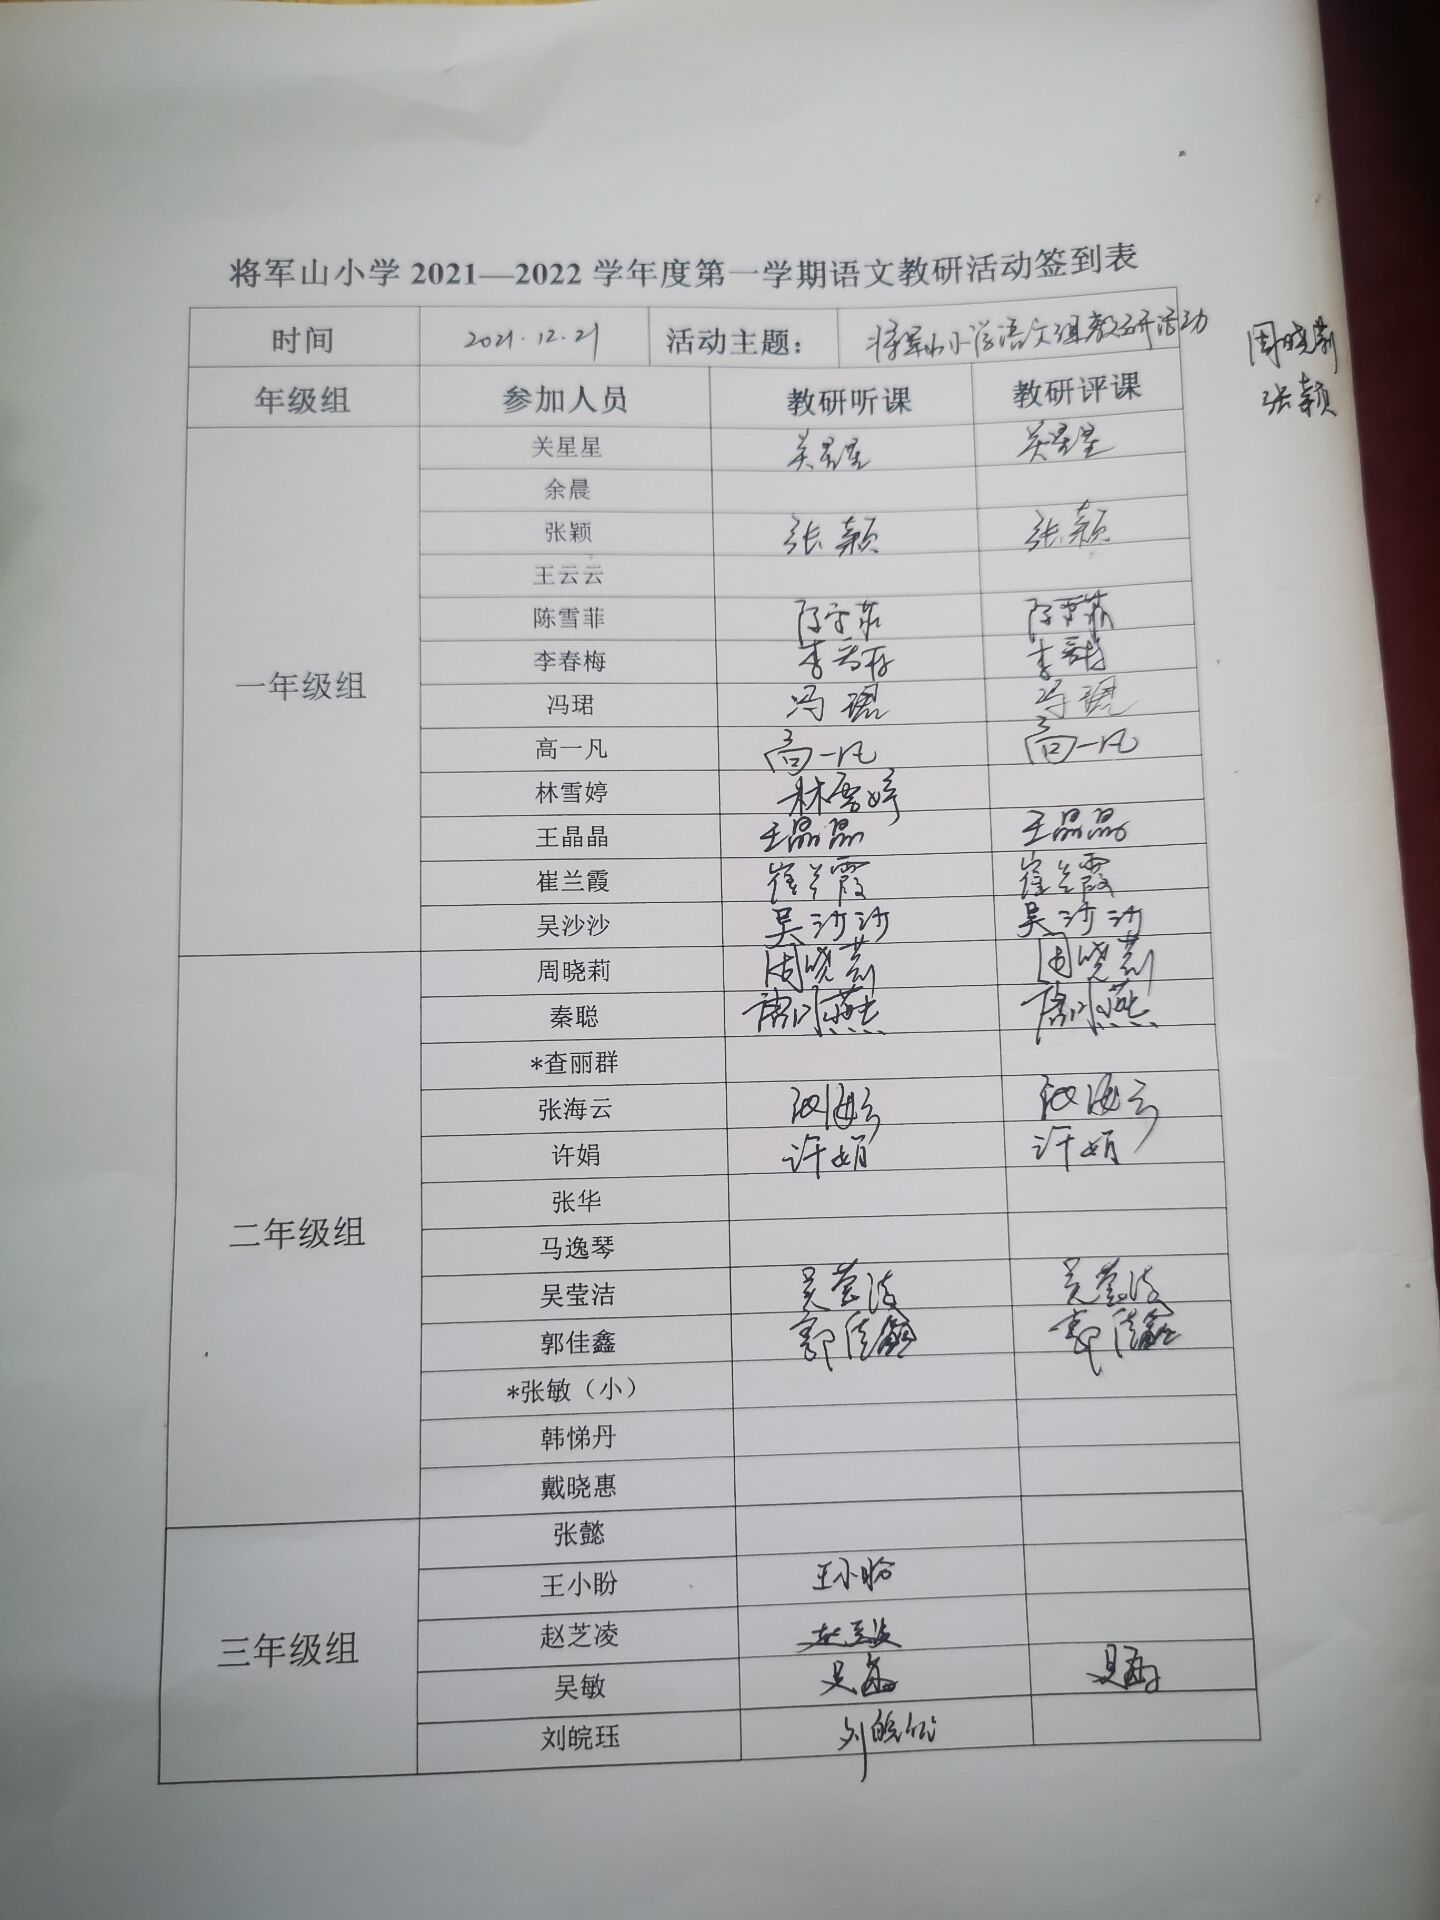 将军山小学 2021—2022 学年度第一学期语文教研活动签到表
时间 2021.12.21 活动主题： 将军山小学语文组教研活动
周晓莉
张颖
年级组 参加人员 教研听课 教研评课
一年级组
关星星 关星星 关星星
余晨
张颖 张颖 张颖
王云云
陈雪菲 陈雪菲 陈雪菲
李春梅 李春梅 李春梅
冯珺 冯珺 冯珺
高一凡 高一凡 高一凡
林雪婷 林雪婷
王晶晶 王晶晶 王晶晶
崔兰霞 崔兰霞 崔兰霞
吴沙沙 吴沙沙 吴沙沙
二年级组
周晓莉 周晓莉 周晓莉
秦聪
*查丽群
张海云 张海云 张海云
许娟 许娟 许娟
张华
马逸琴
吴莹洁 吴莹洁 吴莹洁
郭佳鑫 郭佳鑫 郭佳鑫
*张敏（小）
韩悌丹
戴晓惠
三年级组
张懿
王小盼 王小盼
赵芝凌 赵芝凌
吴敏 吴敏 吴敏
刘皖珏 刘皖